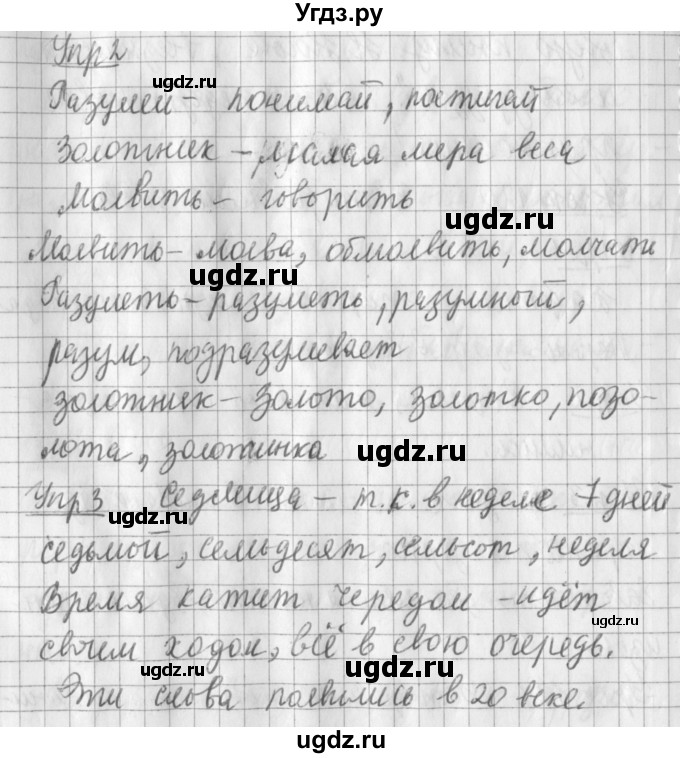 Угдз.ру
Упр 2
Разумей – понимай, постигай
Золотник – малая мера веса
Молвить – говорить
Молвить – молва, обмолвить, молчать
Разуметь – разуметь, разумный,
разум, подразумевает
золотник – золото, золотко, позо-
лота, золотинка
Упр 3 Седмица – т.к. в неделе 7 дней
седьмой, семьдесят, семьсот, неделя
Время катит чередом – идёт
своим ходом, всё в свою очередь.
Эти слова появились в 20 веке.
ugdz.ru
ugdz.ru
ugdz.ru
ugdz.ru
ugdz.ru
ugdz.ru
ugdz.ru
ugdz.ru
ugdz.ru
ugdz.ru
ugdz.ru
ugdz.ru